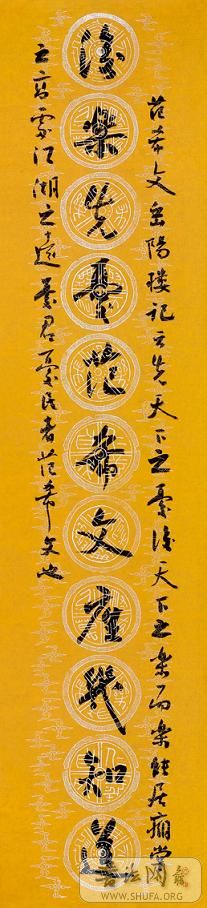 范希文岳陽樓記云先天下之憂後天下之樂而樂雖居廟堂
後樂先憂范希文庶幾知道
之高處江湖之遠憂君憂民者范希文也
書法网
WWW.SHUFA.ORG